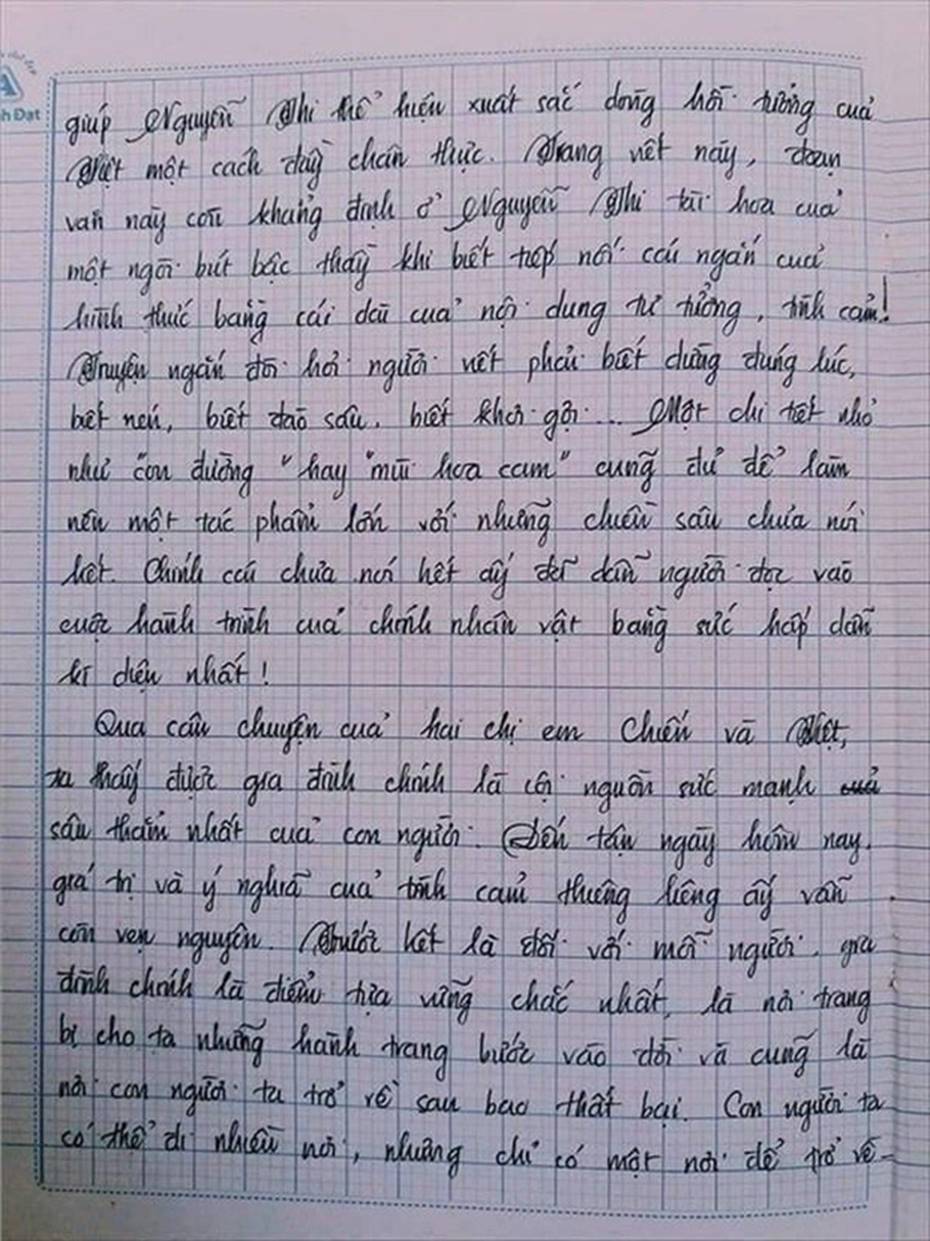 giúp Nguyễn Thi thể hiện xuất sắc dòng hồi tưởng của
Việt một cách đầy chân thực. Trang viết này, đoạn
văn này còn khẳng định ở Nguyễn Thi tài hoa của
một ngòi bút bậc thầy khi biết tiếp nối cái ngắn của
hình thức bằng cái dài của nội dung tư tưởng, tình cảm!
Truyện ngắn đòi hỏi người viết phải biết dừng đúng lúc,
biết nén, biết đào sâu, biết khơi gợi... Một chi tiết nhỏ
như "con đường" hay "mùi hoa cam" cũng đủ để làm
nên một tác phẩm lớn với những chiều sâu chưa nói
hết. Chính cái chưa nói hết ấy để dẫn người đọc vào
cuộc hành trình của chính nhân vật bằng sức hấp dẫn
kì diệu nhất!
Qua câu chuyện của hai chị em Chiến và Việt,
ta thấy được gia đình chính là cội nguồn sức mạnh
sâu thẳm nhất của con người. Đến tận ngày hôm nay,
giá trị và ý nghĩa của tình cảm thương liêng ấy vẫn
còn vẹn nguyên. Trước hết là đối với mỗi người, gia
đình chính là điểm tựa vững chắc nhất, là nơi trang
bị cho ta những hành trang bước vào đời và cũng là
nơi con người ta trở về sau bao thất bại. Con người ta
có thể đi nhiều nơi, nhưng chỉ có một nơi để trở về -
h Đạt